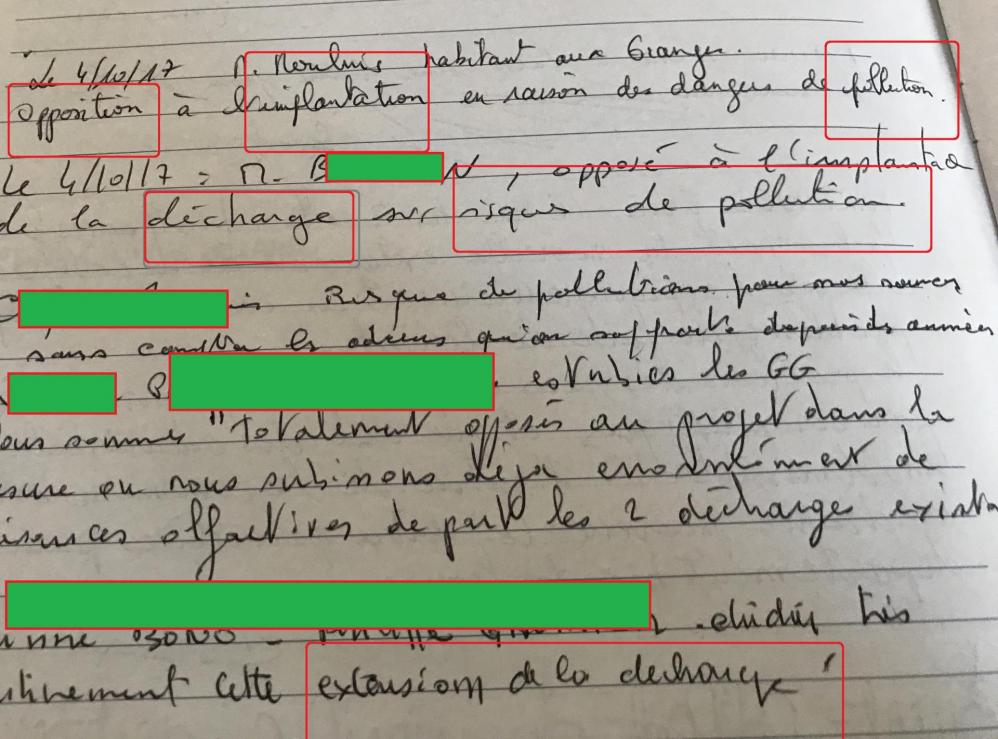 Le 4/10/17 M. habitant aux Granges.
Opposition à l'implantation en raison des dangers de pollution.
Le 4/10/17 : M. B N, opposé à l'implantat
de la décharge sur risques de pollution.
Risque de pollutions pour nos sources
sans compter les odeurs qu'on supporte depuis des années
les GG
ous sommes "totalement opposés au projet dans la
sure ou nous subissons déja énormément de
isances olfactives de part les 2 décharges exista
cette extension de la decharge